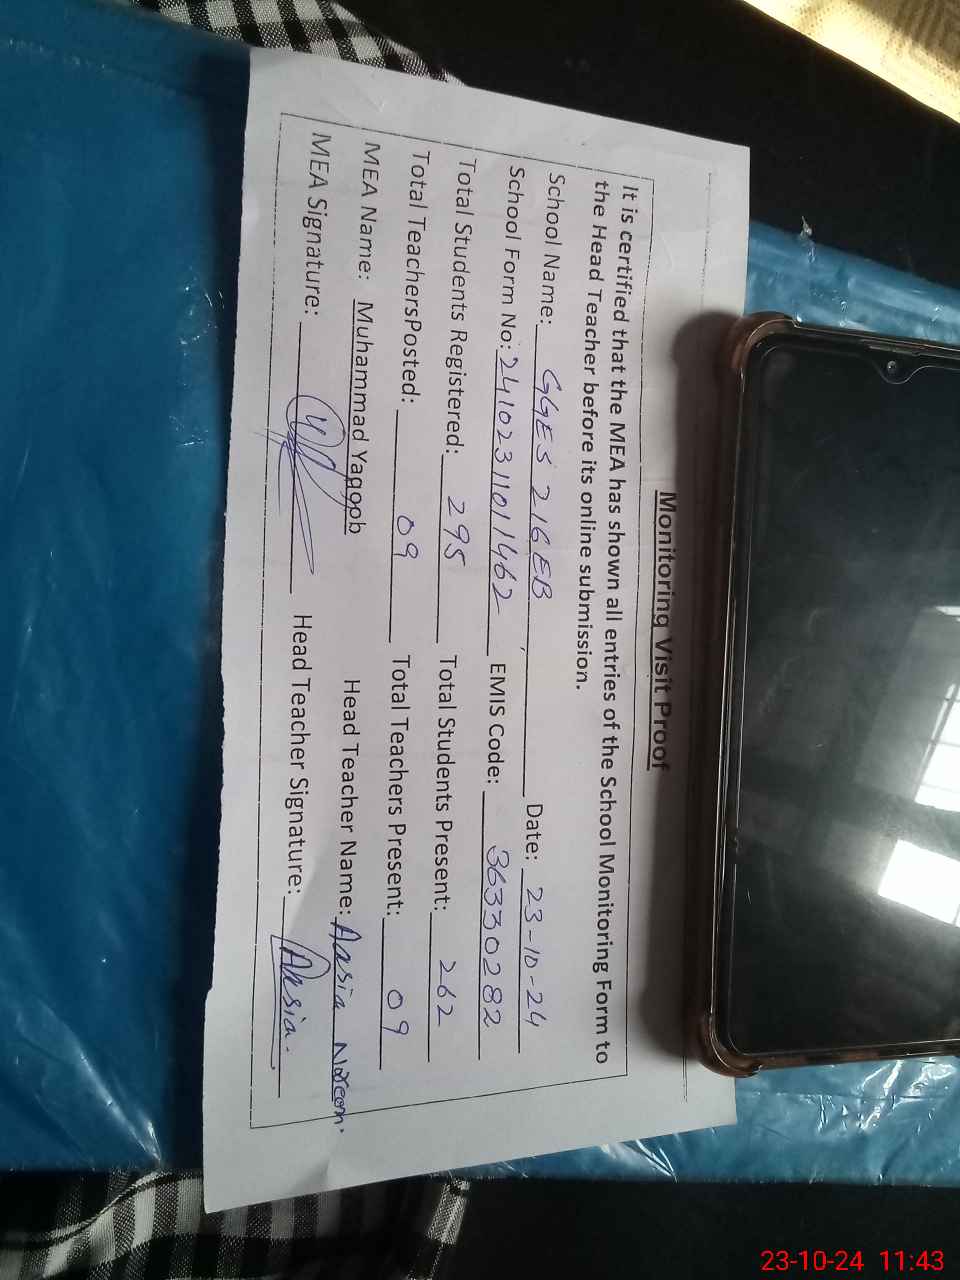 Monitoring Visit Proof
It is certified that the MEA has shown all entries of the School Monitoring Form to
the Head Teacher before its online submission.
School Name: GGES 216EB Date: 23-10-24
School Form No: 24102311011462 EMIS Code: 36330282
Total Students Registered: 295 Total Students Present: 262
Total TeachersPosted: 09 Total Teachers Present: 09
MEA Name: Muhammad Yaqoob Head Teacher Name: Aasia Noreen.
MEA Signature: Head Teacher Signature: Aasia.
23-10-24 11:43